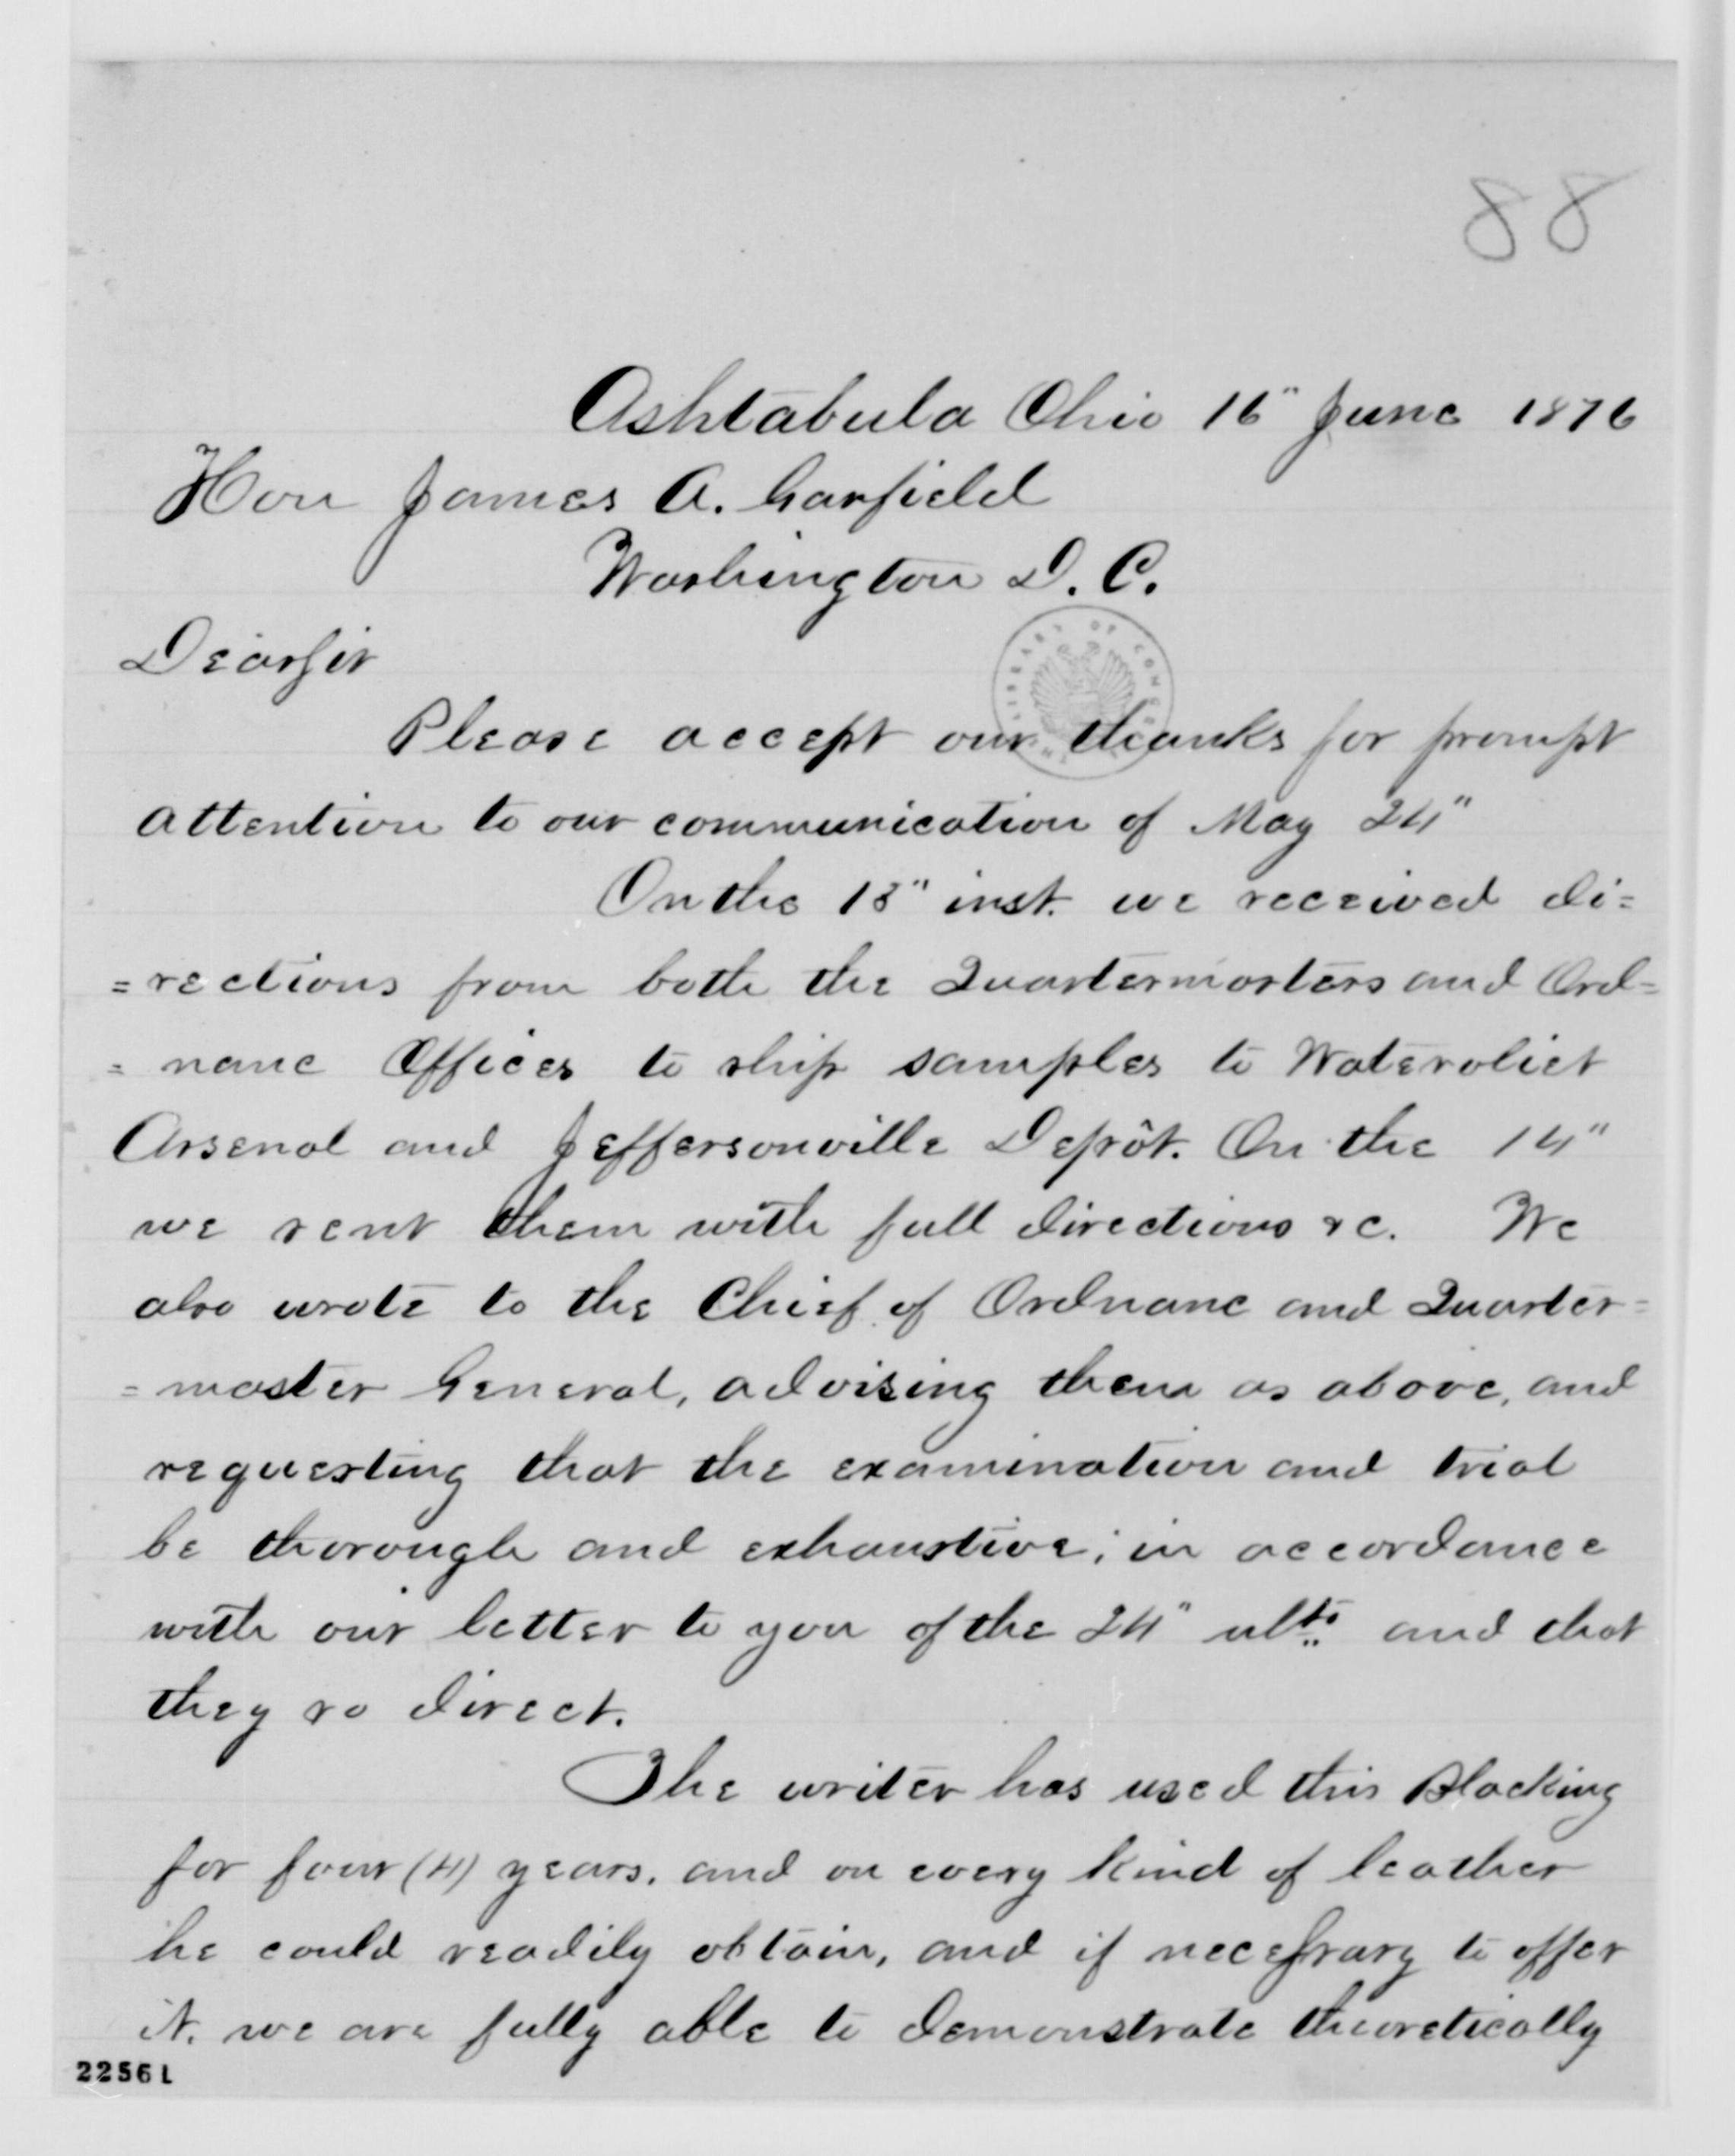 88
Ashtabula Ohio 16" June 1876
Hon James A. Garfield
Washington D. C.
Dear Sir
Please accept our thanks for prompt
attention to our communication of May 24"
On the 13" inst. we received di=
=rections from both the Quartermasters and Ord=
=nanc Offices to ship samples to Watervliet
Arsenal and Jeffersonville Depôt. On the 14"
we sent them with full directions &c. We
also wrote to the Chief of Ordnanc and Quarter=
=master General, advising them as above, and
requesting that the examination and trial
be thorough and exhaustive; in accordance
with our letter to you of the 24" ulto and that
they so direct.
The writer has used this Blacking
for four (4) years, and on every kind of leather
he could readily obtain, and if necessary to offer
it, we are fully able to demonstrate theoretically
22561
LIBRARY OF CONGRESS